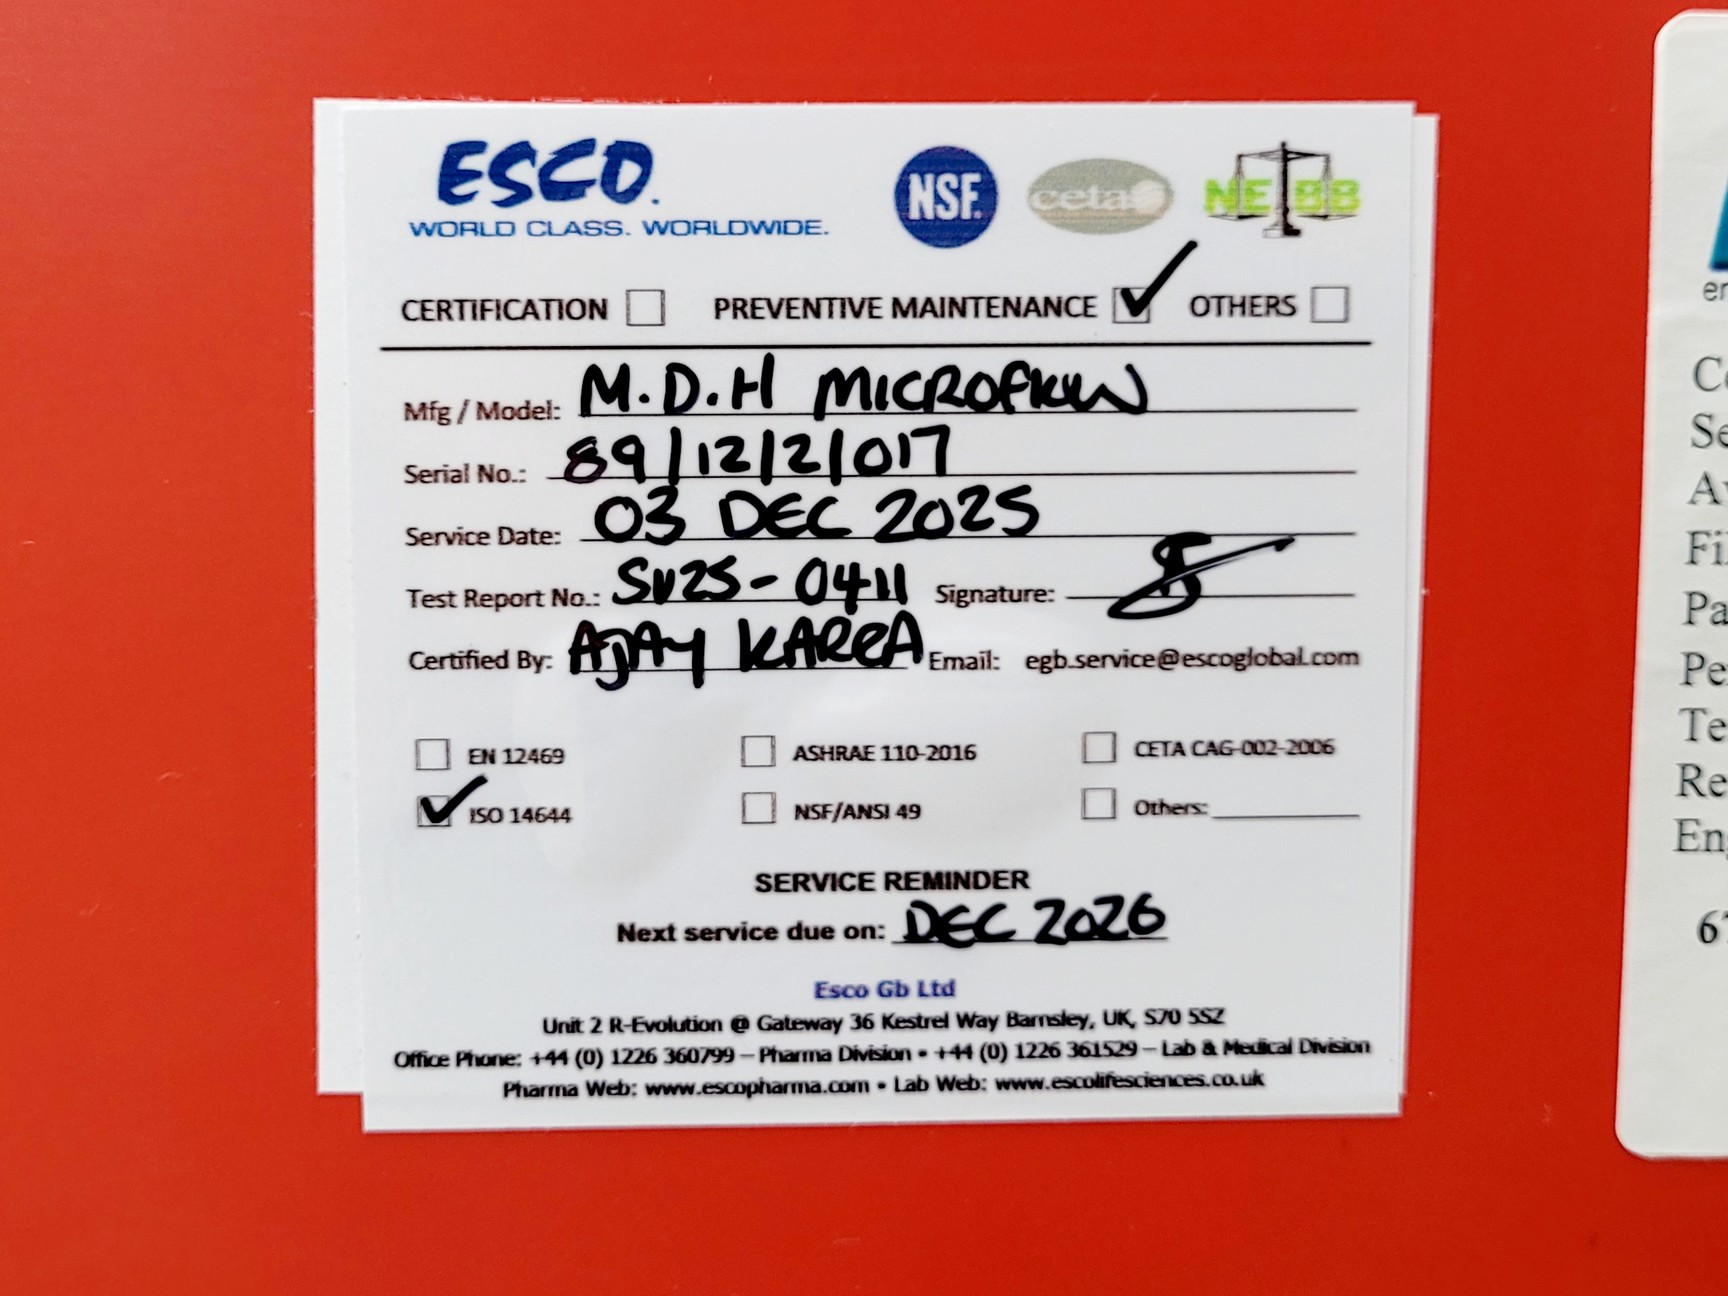 ESCO.
WORLD CLASS. WORLDWIDE.
NSF.
ceta
NEBB
CERTIFICATION PREVENTIVE MAINTENANCE OTHERS
Mfg / Model: M.D.H MICROFLOW
Serial No.: 89/12/2/017
Service Date: 03 DEC 2025
Test Report No.: SV25-0411 Signature:
Certified By: AJAY KAREA Email: egb.service@escoglobal.com
EN 12469 ASHRAE 110-2016 CETA CAG-002-2006
ISO 14644 NSF/ANSI 49 Others:
SERVICE REMINDER
Next service due on: DEC 2026
Esco Gb Ltd
Unit 2 R-Evolution @ Gateway 36 Kestrel Way Barnsley, UK, S70 5SZ
Office Phone: +44 (0) 1226 360799 – Pharma Division • +44 (0) 1226 361529 – Lab & Medical Division
Pharma Web: www.escopharma.com • Lab Web: www.escolifesciences.co.uk
er
Co
Se
Av
Fil
Pa
Pe
Te
Re
Eng
67